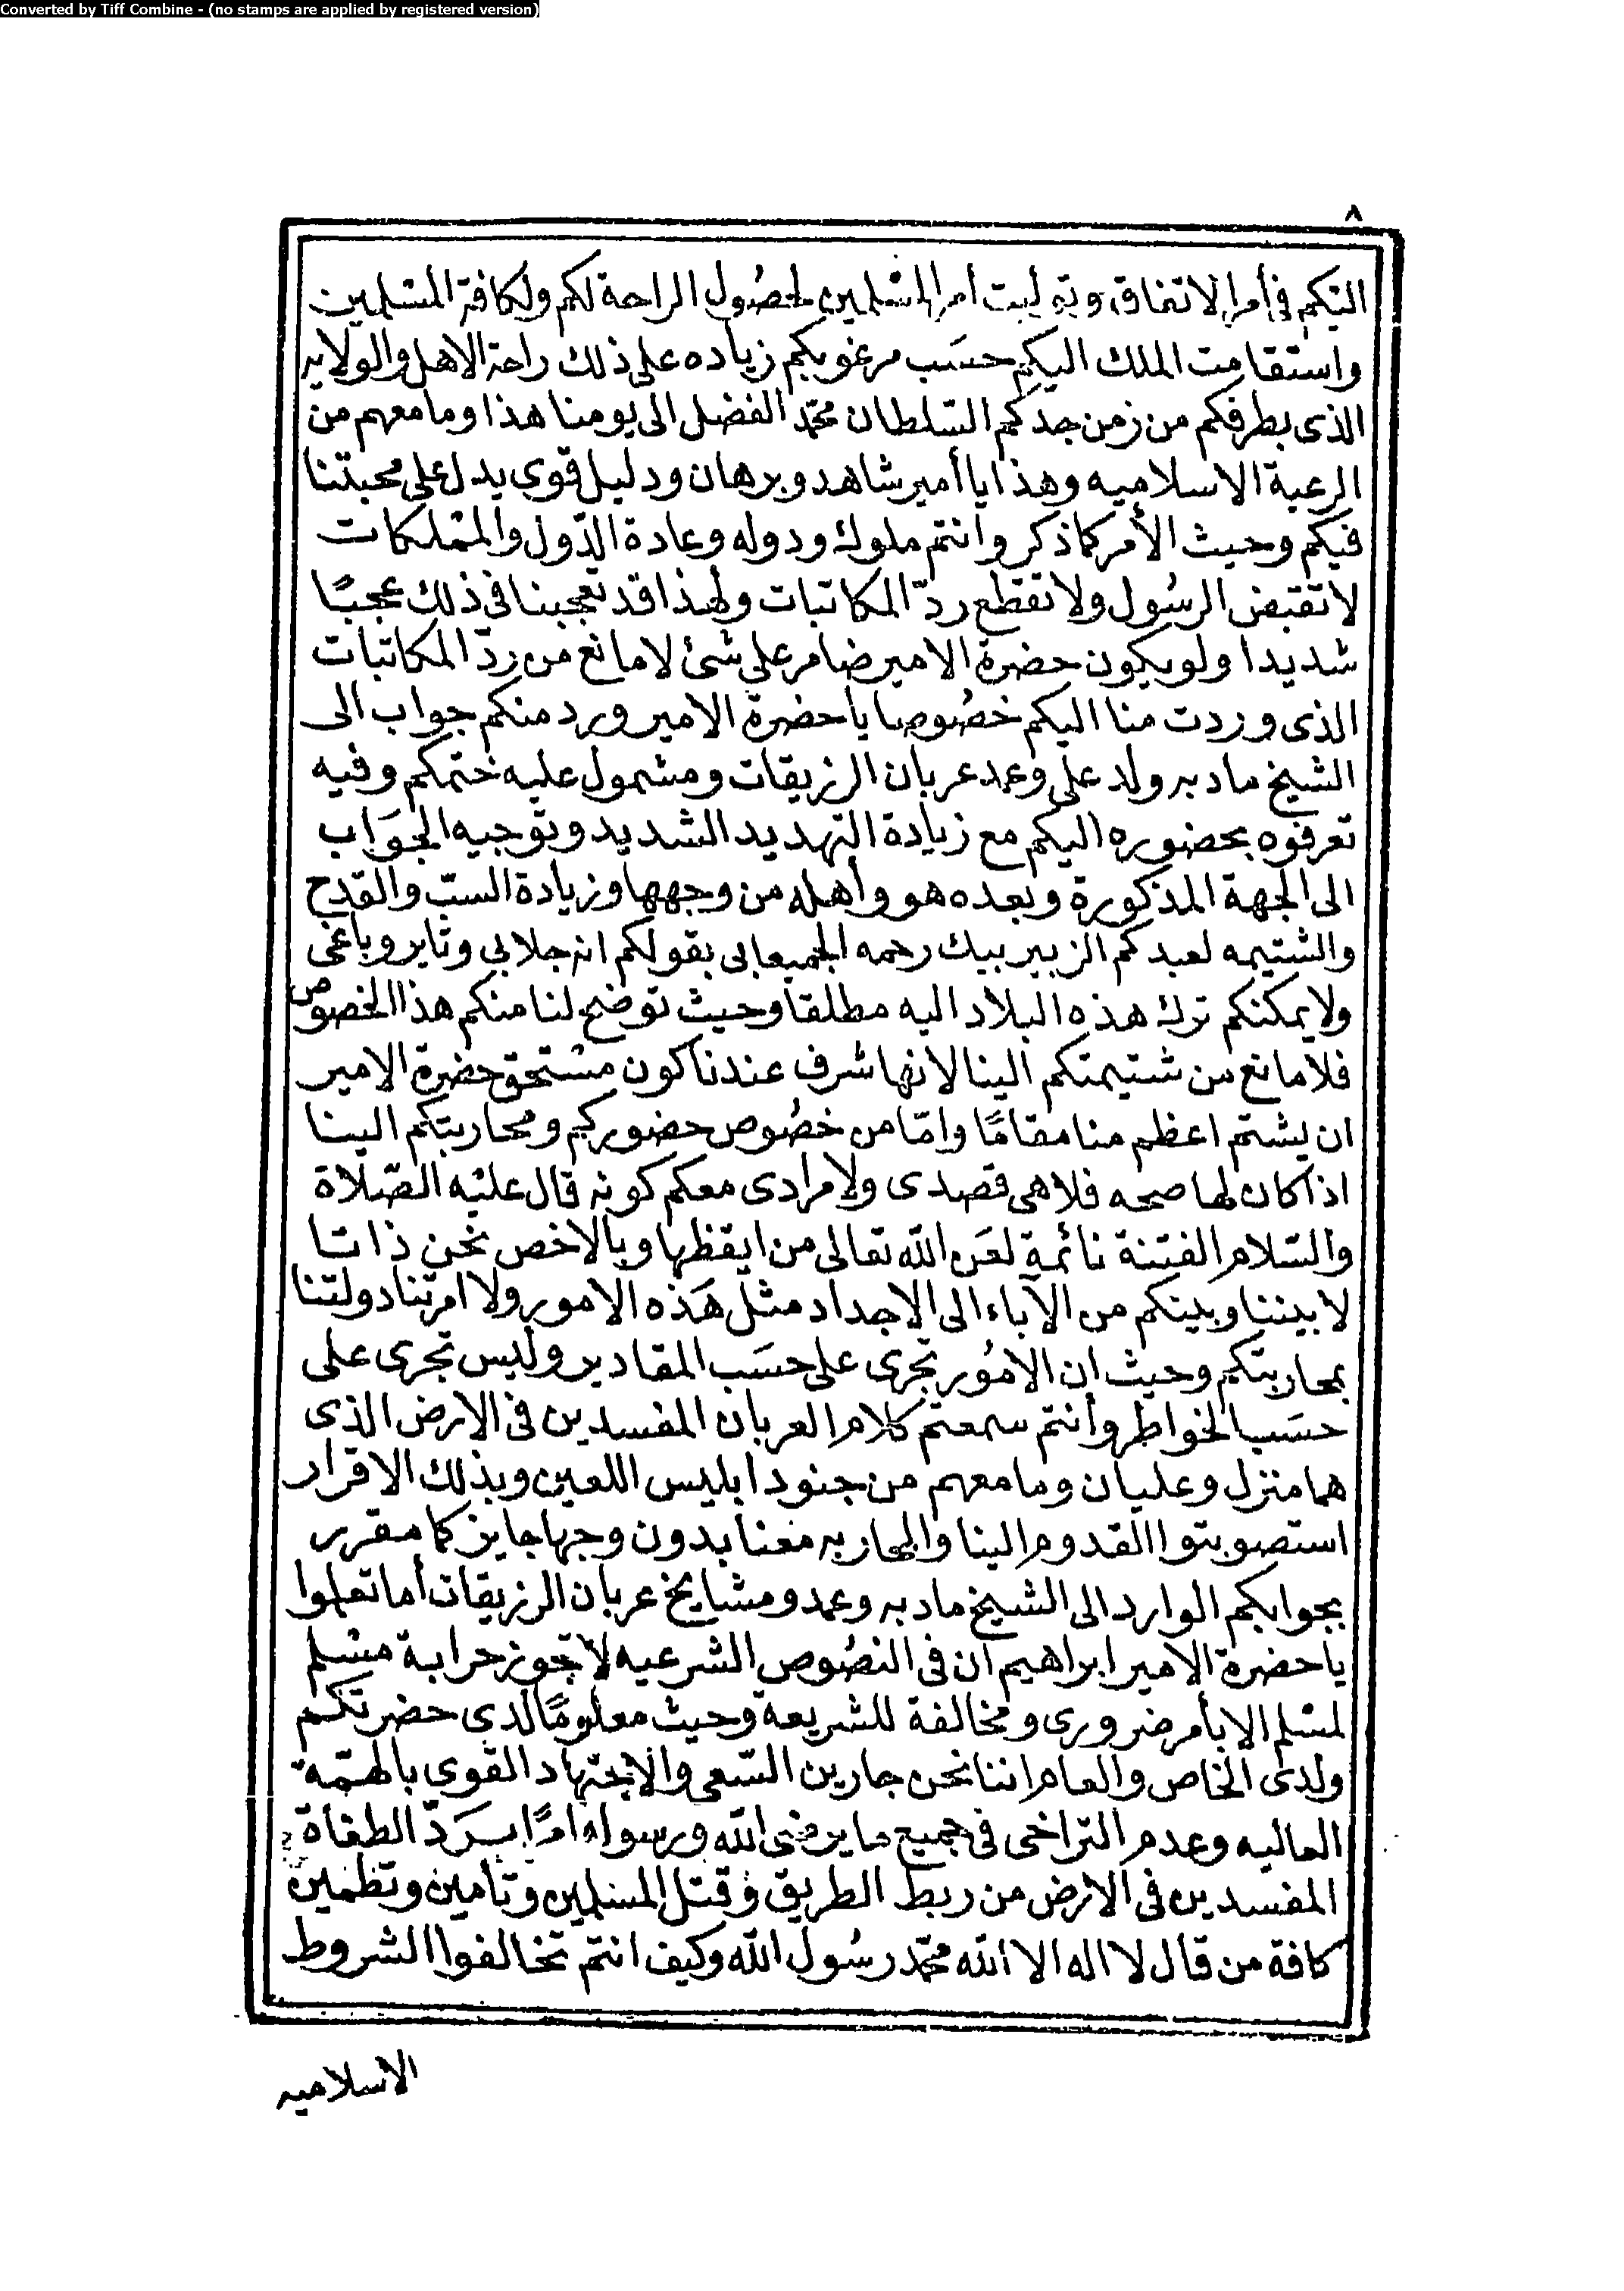 Converted by Tiff Combine - (no stamps are applied by registered version)
٨
اليكم في أمر الاتفاق وتوليت أمر المسلمين لحصُول الراحة لكم ولكافة المسلمين
واستقامت الملك اليكم حسَب مرغوبكم زياده على ذلك راحة الاهل والولايه
الذى بطرفكم من زمن جدكم السّلطان محمّد الفضل الى يومنا هذا وما معهم من
الرعية الاسلاميه وهذا يا أمير شاهد وبرهان ودليل قوى يدل على محبتنا
فيكم وحيث الأمر كما ذكر وانتم ملوك ودوله وعادة الدّول والممْلكات
لا تقبض الرسُول ولا تقطع ردّ المكاتبات ولهذا قد تعجبنا في ذلك عجبًا
شديدا ولو يكون حضرة الامير ضامر على شئ لا مانع من ردّ المكاتبات
الذى وردت منا اليكم خصُوصا يا حضرة الامير ورد منكم جواب الى
الشيخ مادبه ولد على وعمد عربان الرزيقات ومشمول عليه ختمكم وفيه
تعرفوه بحضوره اليكم مع زيادة التهديد الشديد وتوجيه الجوَاب
الى الجهة المذكورة وبعده هو وأهله من وجهها وزيادة السبّ والقدح
والشتيمه لعبدكم الزبير بيك رحمه الجميعابى بقولكم انه جلابي وثاير وباغى
ولا يمكنكم ترك هذه البلاد اليه مطلقا وحيث توضح لنا منكم هذا الخصوص
فلا مانع من شتيمتكم الينا لانها شرف عندنا كون مسْتحق حضرة الامير
ان يشتم اعظم منا مقامًا وامّا من خصُوص حضوركم ومحاربتكم الينا
اذا كان لها صحه فلا هى قصدى ولا مرادى معكم كونه قال عليْه الصّلاة
والسّلام الفتنة نائمة لعَن الله تعالى من ايقظها وبالاخص نحن ذاتا
لا بيننا وبينكم من الآباء الى الاجداد مثل هَذه الامور ولا امرتنا دولتنا
بمحاربتكم وحيث ان الامُور تجرى على حسَب المقادير وليس تجرى على
حسَب الخواطر وأنتم سمعتم كلام العربان المفسدين فى الارض الذى
هما منزل وعليان وما معهم من جنود ابليس اللعين وبذلك الاقرار
استصوبتوا القدوم الينا والمحاربه معنا بدون وجها جايز كما مقرر
بجوابكم الوارد الى الشيخ مادبه وعمد ومشايخ عربان الرزيقات أما تعلموا
يا حضرة الامير ابراهيم ان فى النصُوص الشرعيه لا تجوز حرابة مسْلم
لمسْلم الا بأمر ضرورى ومخالفة للشريعة وحيث معلومًا لدى حضرتكم
ولدى الخاص والعام اننا نحن جارين السّعى والاجتهاد القوى بالهمّة
العاليه وعدم التراخى فى جميع ما يرضى الله ورسوله امرًا بسرَدّ الطغاة
المفسدين فى الارض من ربط الطريق وقتل المسلمين وتأمين وتطمين
كافة من قال لا اله الا الله محمّد رسُول الله وكيف انتم تخالفوا الشروط
الاسلاميه